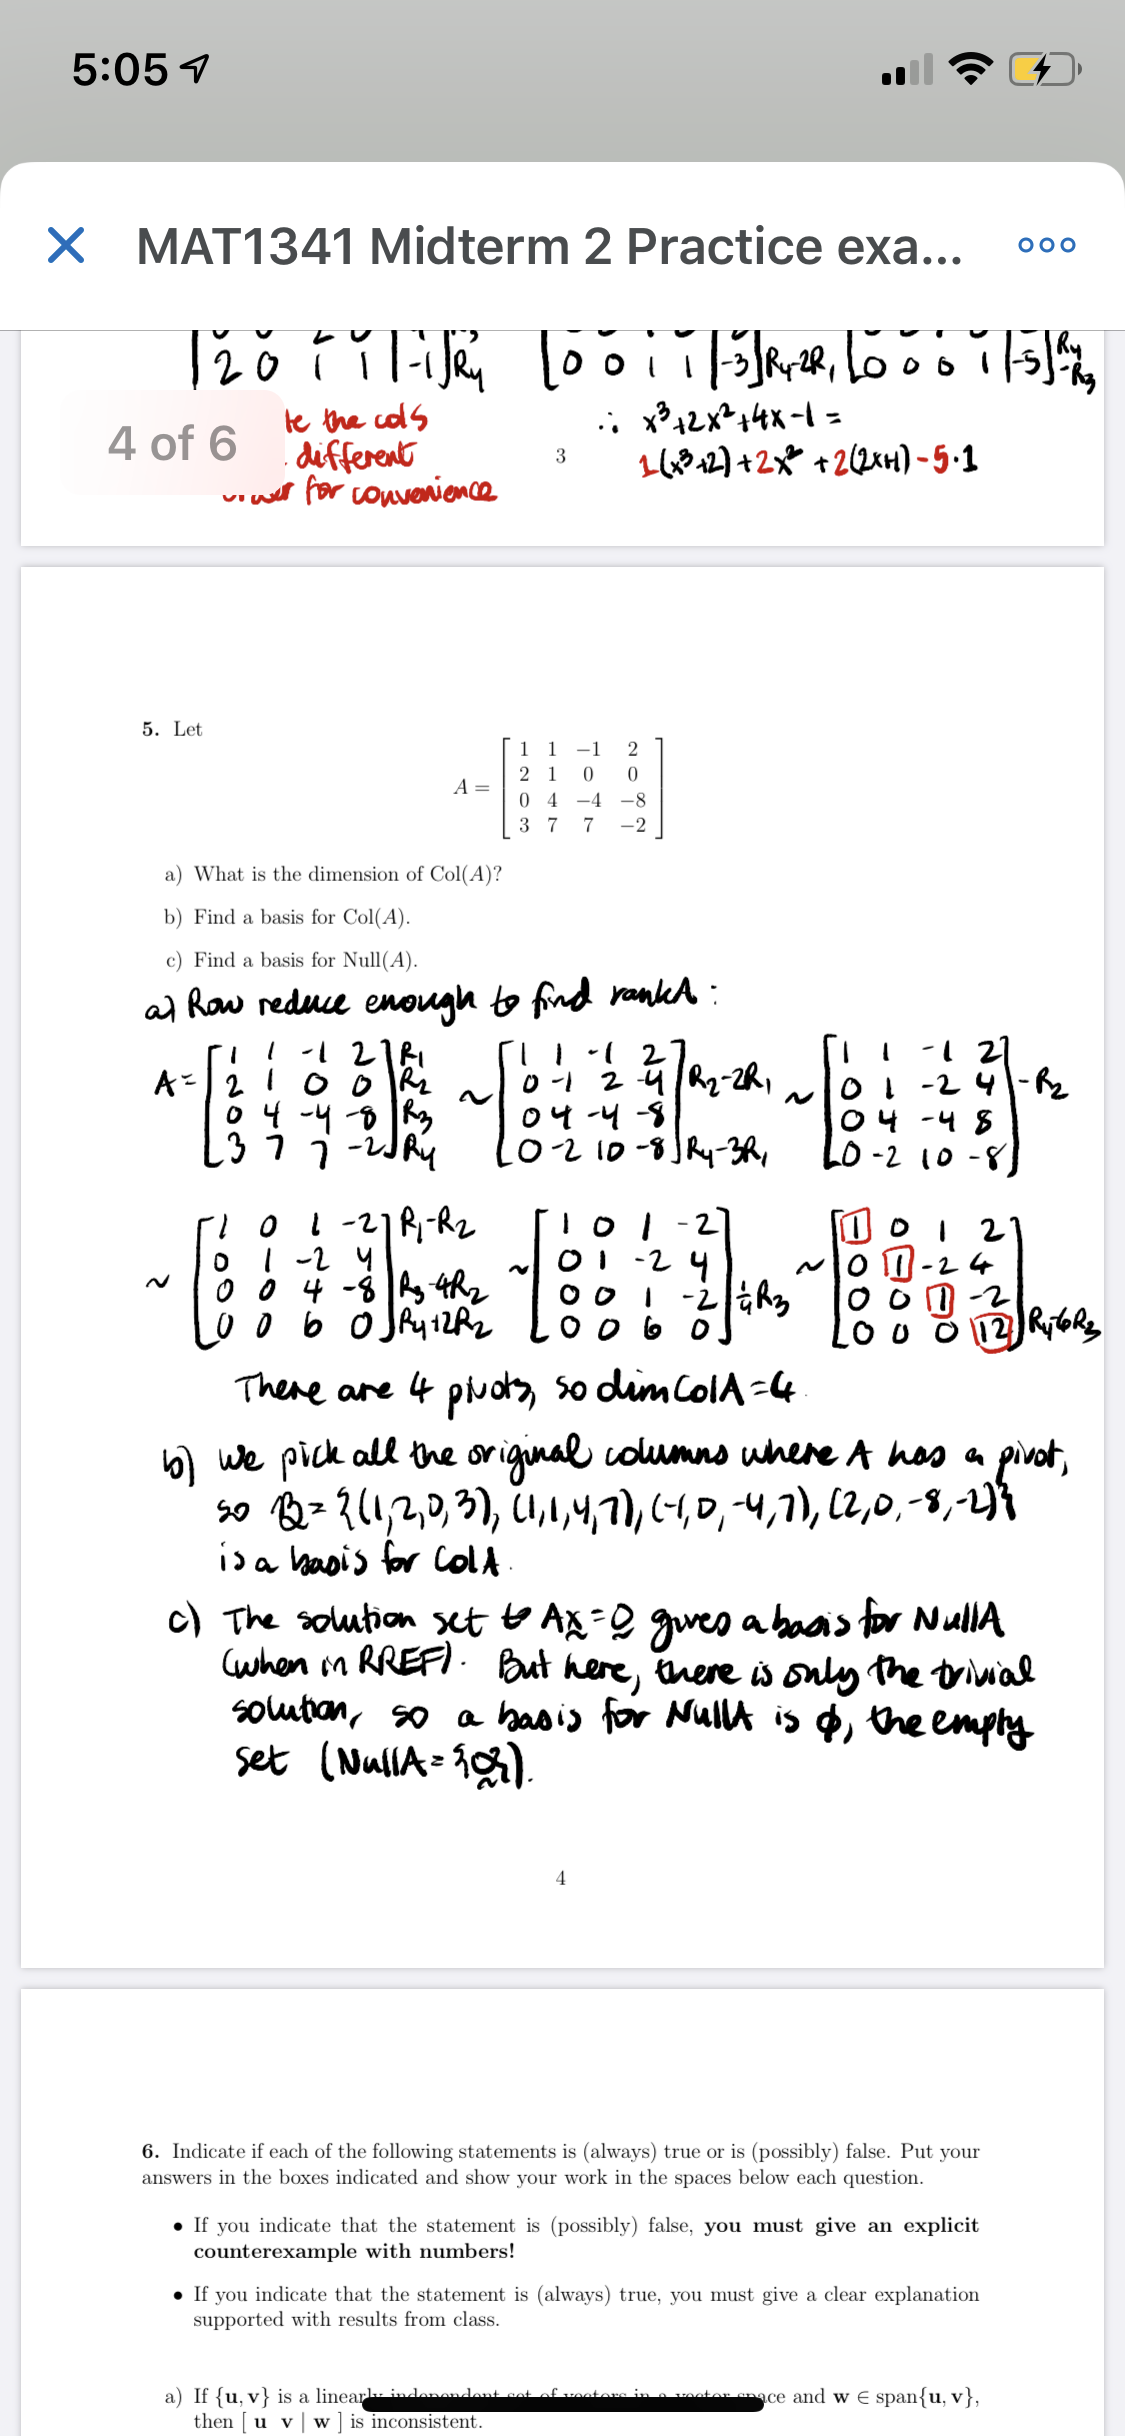 5:05
MAT1341 Midterm 2 Practice exa...
2 0 1 1 | -1 ] R4 [ 0 0 1 1 | -3 ] R4-2R1 [ 0 0 0 1 | -5 ] R4-R3
4 of 6
te the cols
different
for convenience
3
∴ x³+2x²+4x-1 =
1(x³+2)+2x² +2(2x+1)-5·1
5. Let
A = [ 1 1 −1 2
2 1 0 0
0 4 −4 −8
3 7 7 −2 ]
a) What is the dimension of Col(A)?
b) Find a basis for Col(A).
c) Find a basis for Null(A).
a) Row reduce enough to find rankA :
A = [ 1 1 -1 2 ] R1 [ 1 1 -1 2 ] [ 1 1 -1 2 ]
[ 2 1 0 0 ] R2 ~ [ 0 -1 2 -4 ] R2-2R1 ~ [ 0 1 -2 4 ] -R2
[ 0 4 -4 -8 ] R3 [ 0 4 -4 -8 ] [ 0 4 -4 8 ]
[ 3 7 7 -2 ] R4 [ 0 -2 10 -8 ] R4-3R1 [ 0 -2 10 -8 ]
[ 1 0 1 -2 ] R1-R2 [ 1 0 1 -2 ] [ 1 0 1 2 ]
~ [ 0 1 -2 4 ] ~ [ 0 1 -2 4 ] ~ [ 0 1 -2 4 ]
[ 0 0 4 -8 ] R3-4R2 [ 0 0 1 -2 ] ¼R3 [ 0 0 1 -2 ]
[ 0 0 6 0 ] R4+2R2 [ 0 0 6 0 ] [ 0 0 0 12 ] R4-6R3
There are 4 pivots, so dim ColA=4.
b) We pick all the original columns where A has a pivot,
so B = {(1,2,0,3), (1,1,4,7), (-1,0,-4,7), (2,0,-8,-2)}
is a basis for ColA.
c) The solution set to Ax=0 gives a basis for NullA
(when in RREF). But here, there is only the trivial
solution, so a basis for NullA is ϕ, the empty
set (NullA={0}).
4
6. Indicate if each of the following statements is (always) true or is (possibly) false. Put your
answers in the boxes indicated and show your work in the spaces below each question.
• If you indicate that the statement is (possibly) false, you must give an explicit
counterexample with numbers!
• If you indicate that the statement is (always) true, you must give a clear explanation
supported with results from class.
a) If {u, v} is a linearly independent set of vectors in a vector space and w ∈ span{u, v},
then [ u v | w ] is inconsistent.